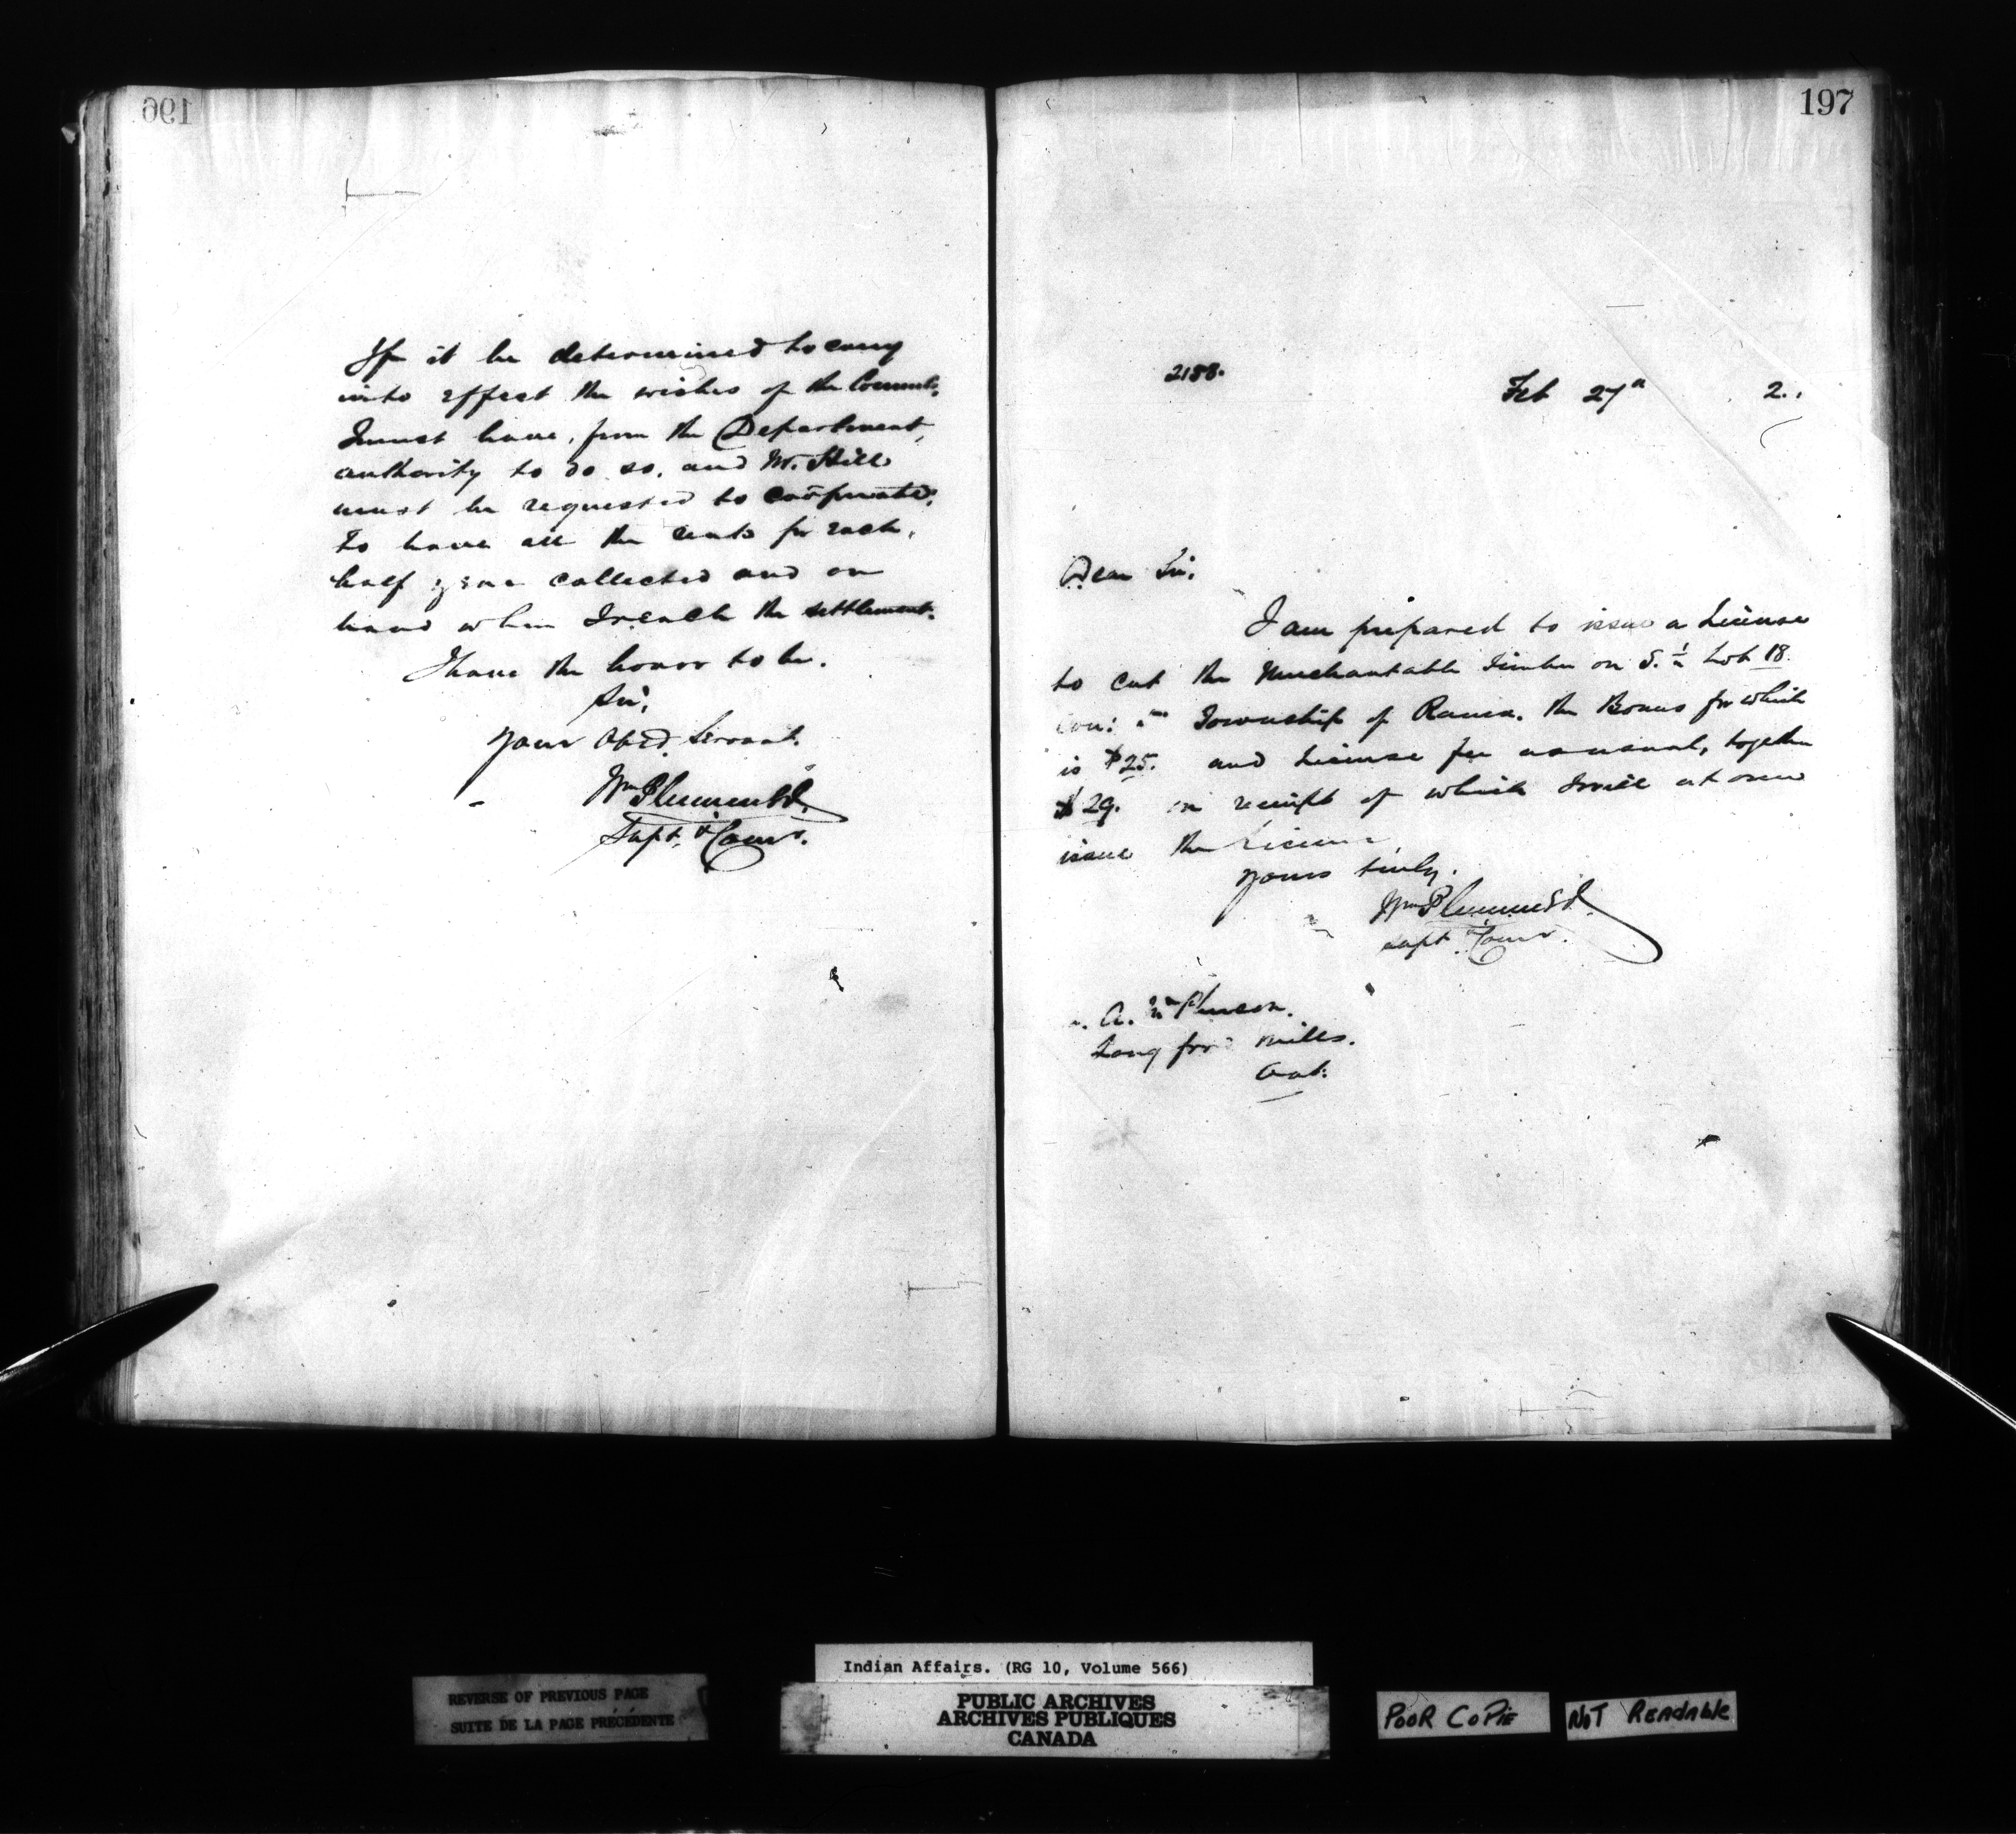 196
If it be determined to carry
into effect the wishes of the Council,
I must have, from the Department,
authority to do so, and Mr. Hill
must be requested to coöperate,
to have all the rents for each,
half year collected and on
hand when I reach the settlement.
I have the honor to be.
Sir,
Your Obed. Servant.
Wm Plummer
Supt. & Comr.
197
2188.
Feb 27th 2.
Dear Sir,
I am prepared to issue a License
to cut the Merchantable Timber on S. ½ Lot 18
Con: Township of Rama. the Bonus for which
is $25. and License fee as usual, together
$29. on receipt of which I will at once
issue the License
Yours truly,
Wm Plummer
Supt. & Comr.
A. McPherson.
Longford Mills.
Ont.
REVERSE OF PREVIOUS PAGE
SUITE DE LA PAGE PRÉCÉDENTE
Indian Affairs. (RG 10, Volume 566)
PUBLIC ARCHIVES
ARCHIVES PUBLIQUES
CANADA
POOR COPIE
NOT READABLE